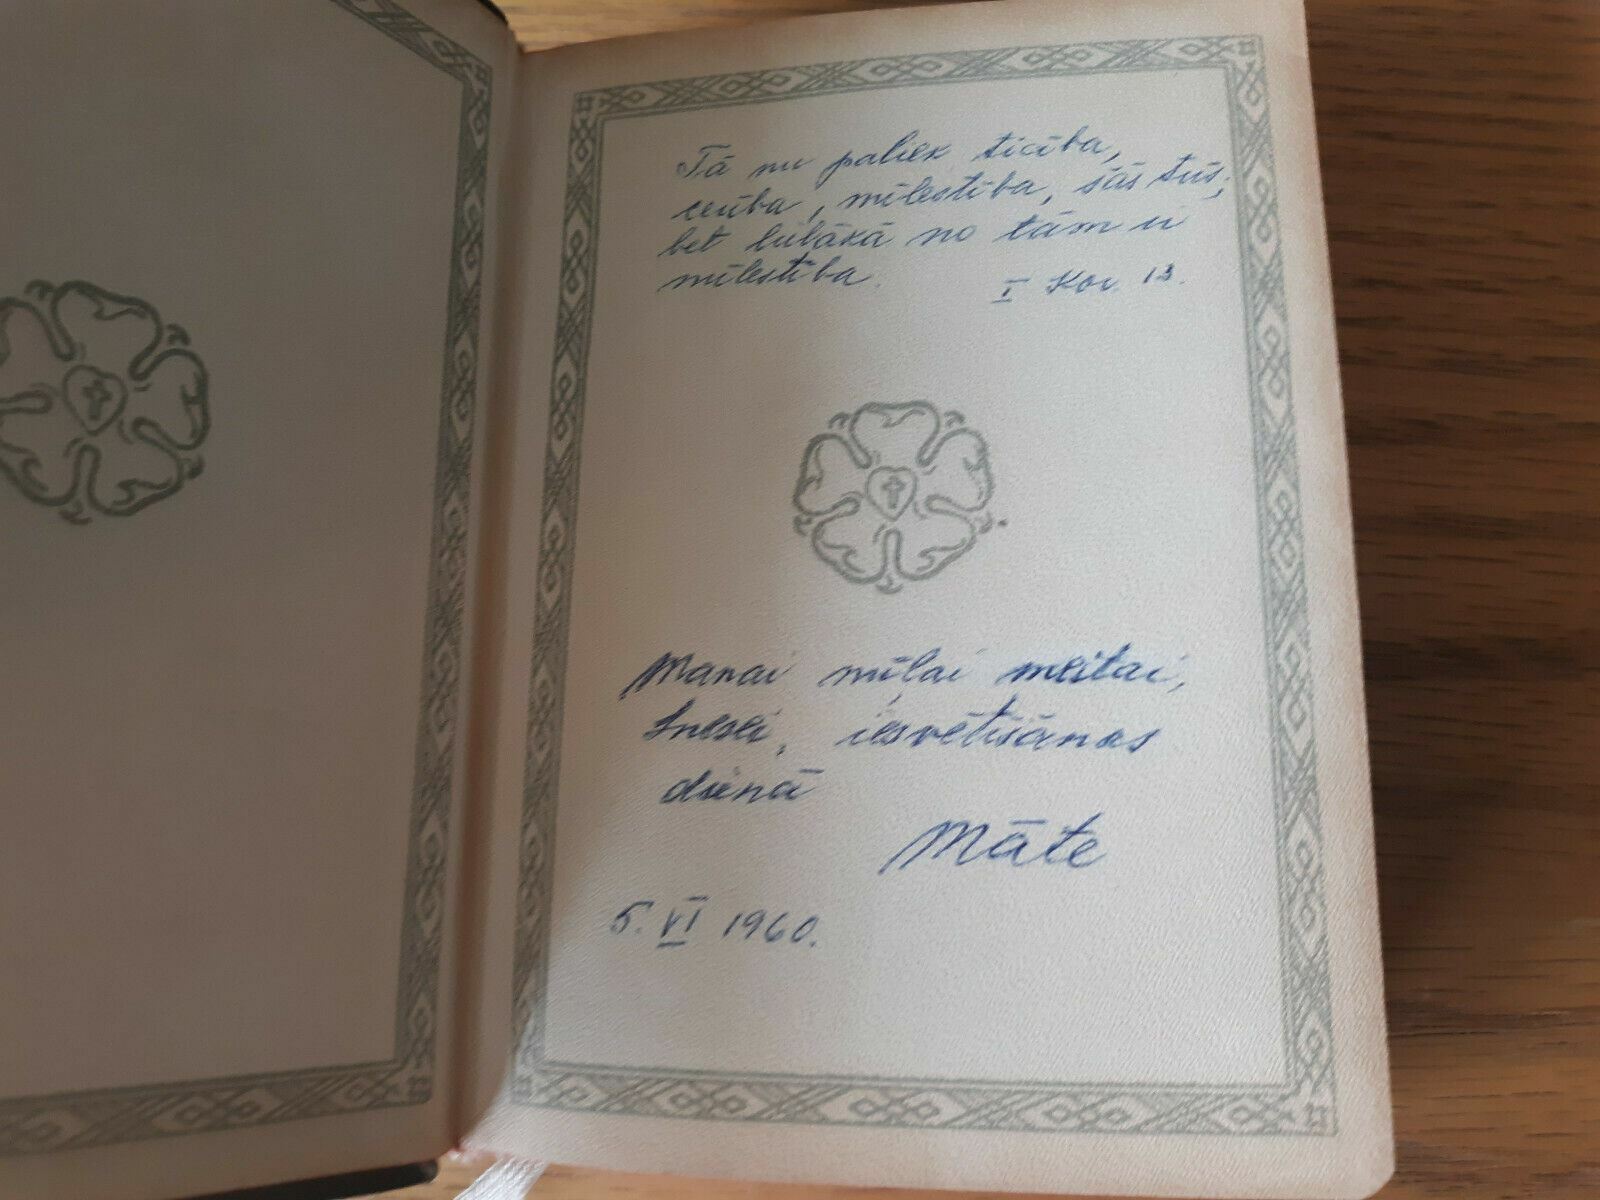 Tā nu paliek ticība,
cerība, mīlestība, šās trīs;
bet lielākā no tām ir
mīlestība. I Kor. 13.
Manai mīļai meitai,
iesvētīšanas
dienā
Māte
5. VI 1960.